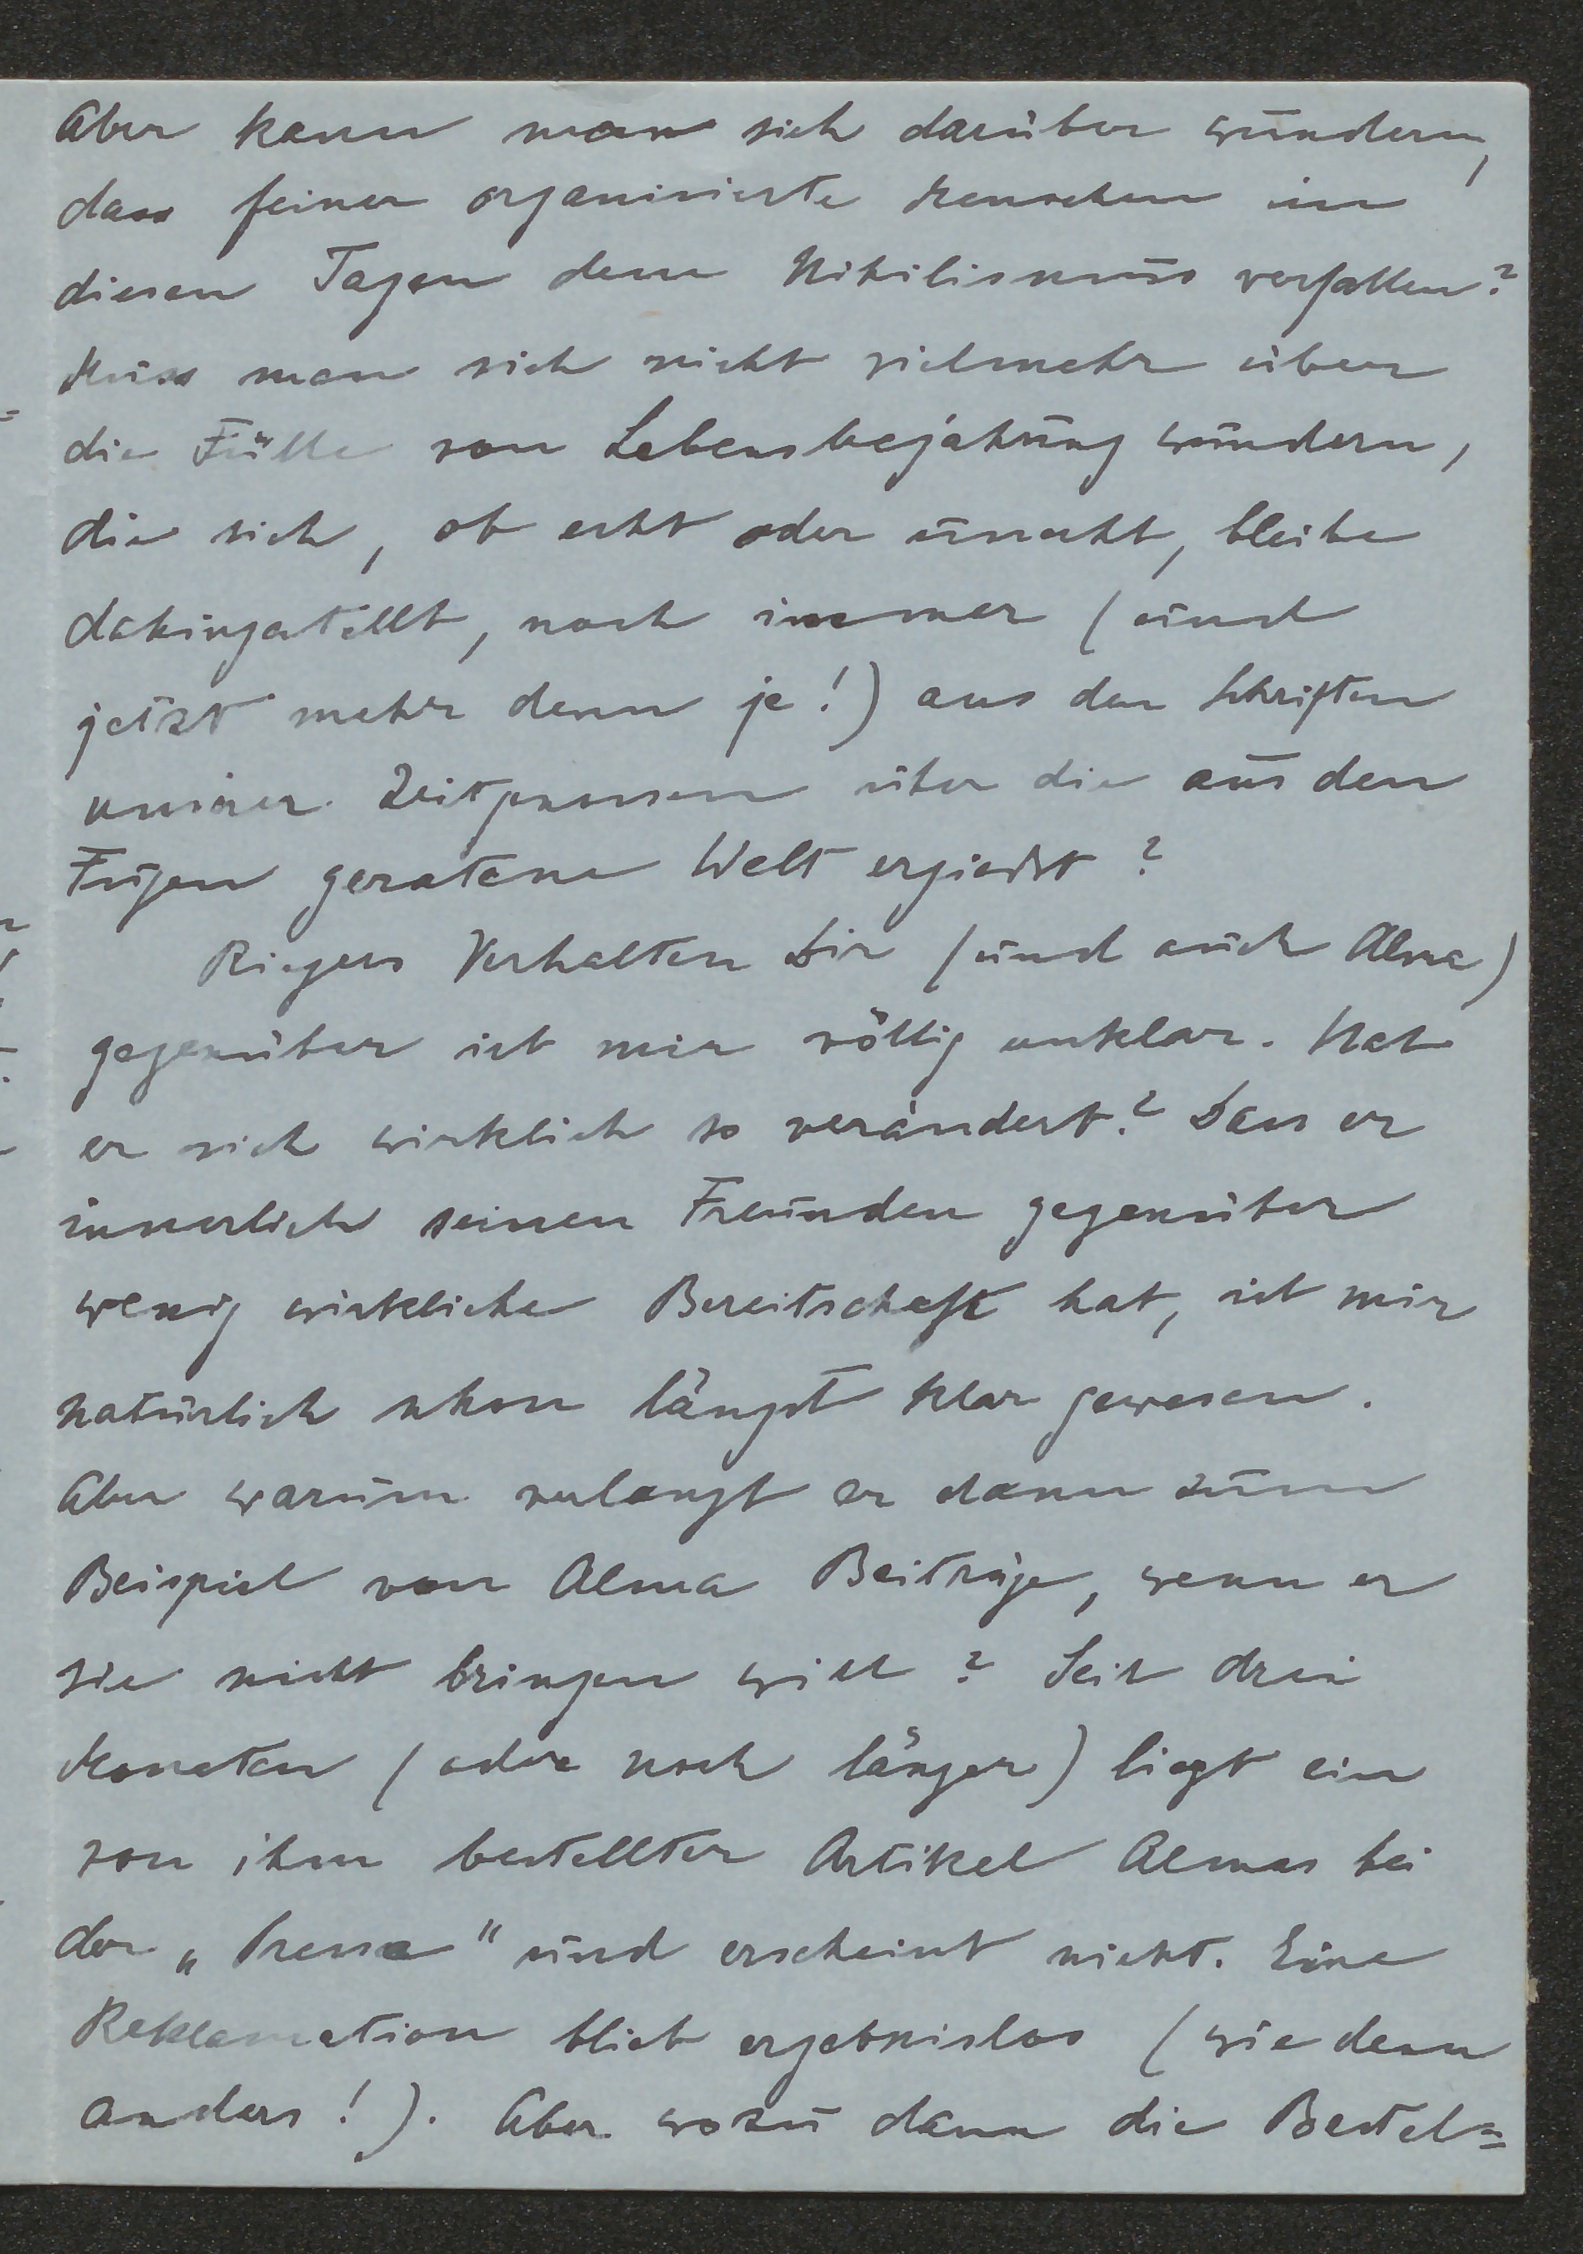 Aber kann man sich darüber wundern,
dass feiner organisierte Menschen in
diesen Tagen dem Nihilismus verfallen?
Muss man sich nicht vielmehr über
die Fülle von Lebensbejahung wundern,
die sich, ob echt oder unecht, bleibe
dahingestellt, noch immer (und
jetzt mehr denn je!) aus den Schriften
unserer Zeitgenossen über die aus den
Fugen geratene Welt ergiesst?
Riegers Verhalten Dir (und auch Alma)
gegenüber ist mir völlig unklar. Hat
er sich wirklich so verändert? Dass er
innerlich seinen Freunden gegenüber
wenig wirkliche Bereitschaft hat, ist mir
natürlich schon längst klar gewesen.
Aber warum verlangt er dann zum
Beispiel von Alma Beiträge, wenn er
sie nicht bringen will? Seit drei
Monaten (oder noch länger) liegt ein
von ihm bestellter Artikel Almas bei
der „Presse" und erscheint nicht. Eine
Reklamation blieb ergebnislos (wie denn
anders!). Aber wozu dann die Bestel=